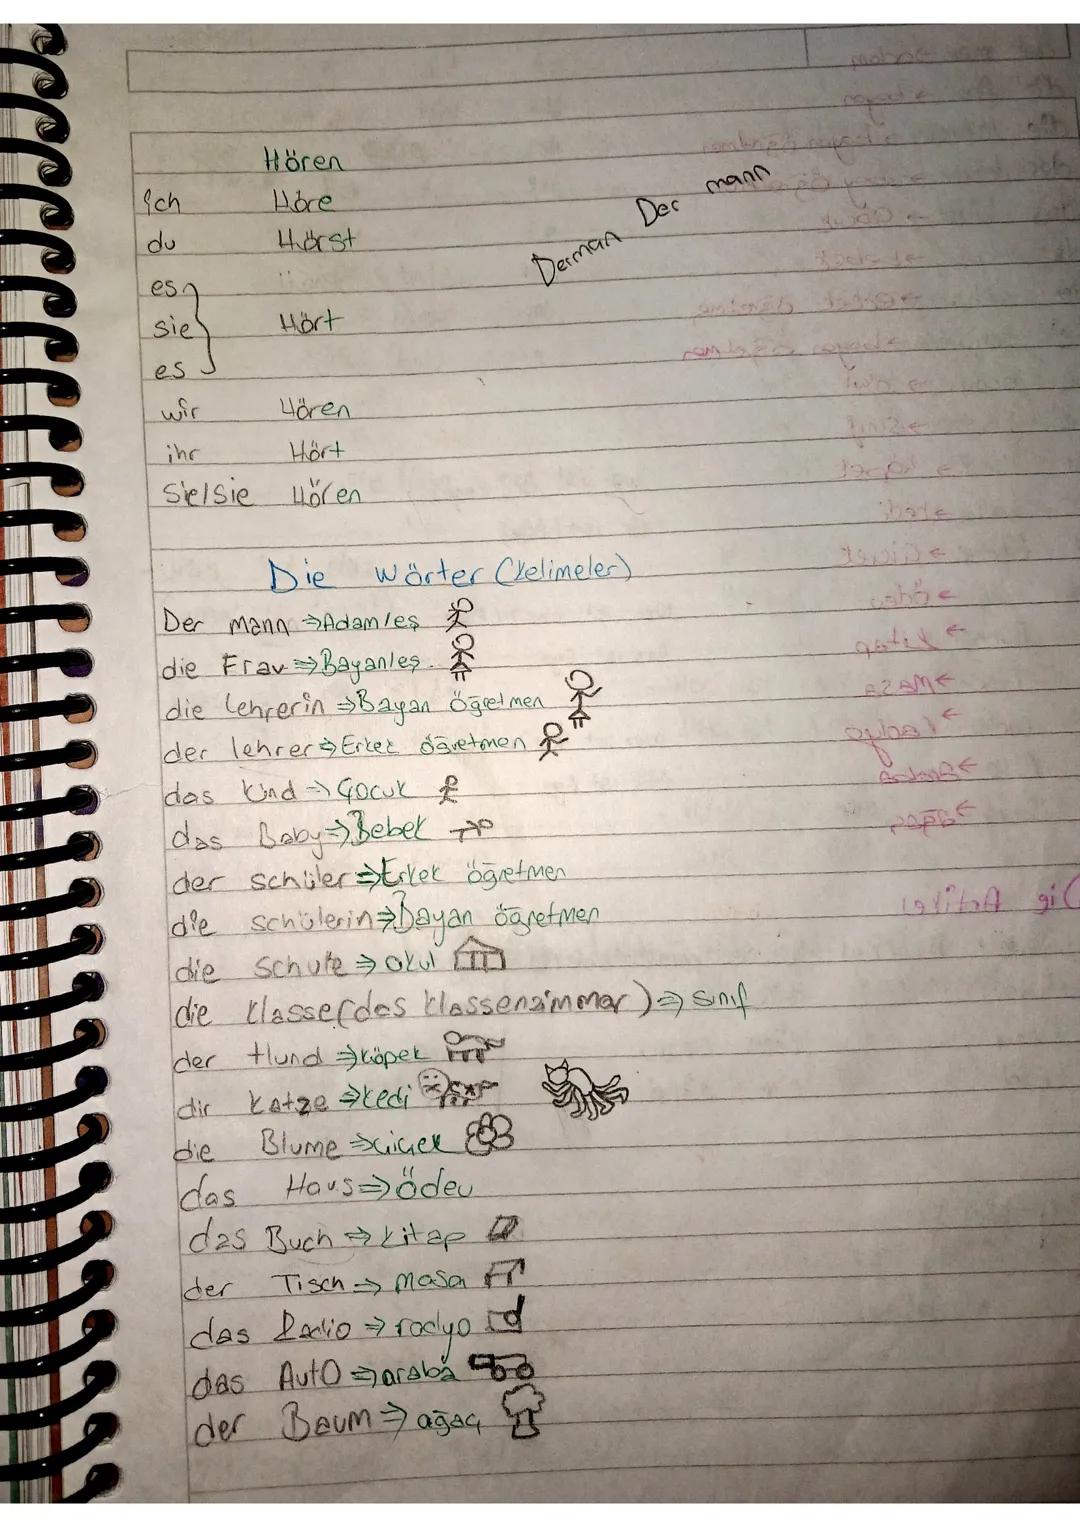 Hören
ich Höre
du Hörst
Derman Der mann
es
sie Hört
es
wir Hören
ihr Hört
Sie/sie Hören
Die Wörter (Kelimeler)
Der mann ⇒ Adam/eş
die Frau ⇒ Bayan/eş
die lehrerin ⇒ Bayan öğretmen
der lehrer ⇒ Erkek öğretmen
das Kind → Çocuk
das Baby ⇒ Bebek
der schüler ⇒ Erkek öğretmen
die schülerin ⇒ Bayan öğretmen
die schule ⇒ okul
die klasse (das klassenzimmer) ⇒ sınıf
der Hund ⇒ köpek
dir Katze ⇒ kedi
die Blume ⇒ çiçek
das Haus ⇒
das Buch ⇒ kitap
der Tisch ⇒ masa
das Radio ⇒ radyo
das Auto ⇒ araba
der Baum ⇒ ağaç